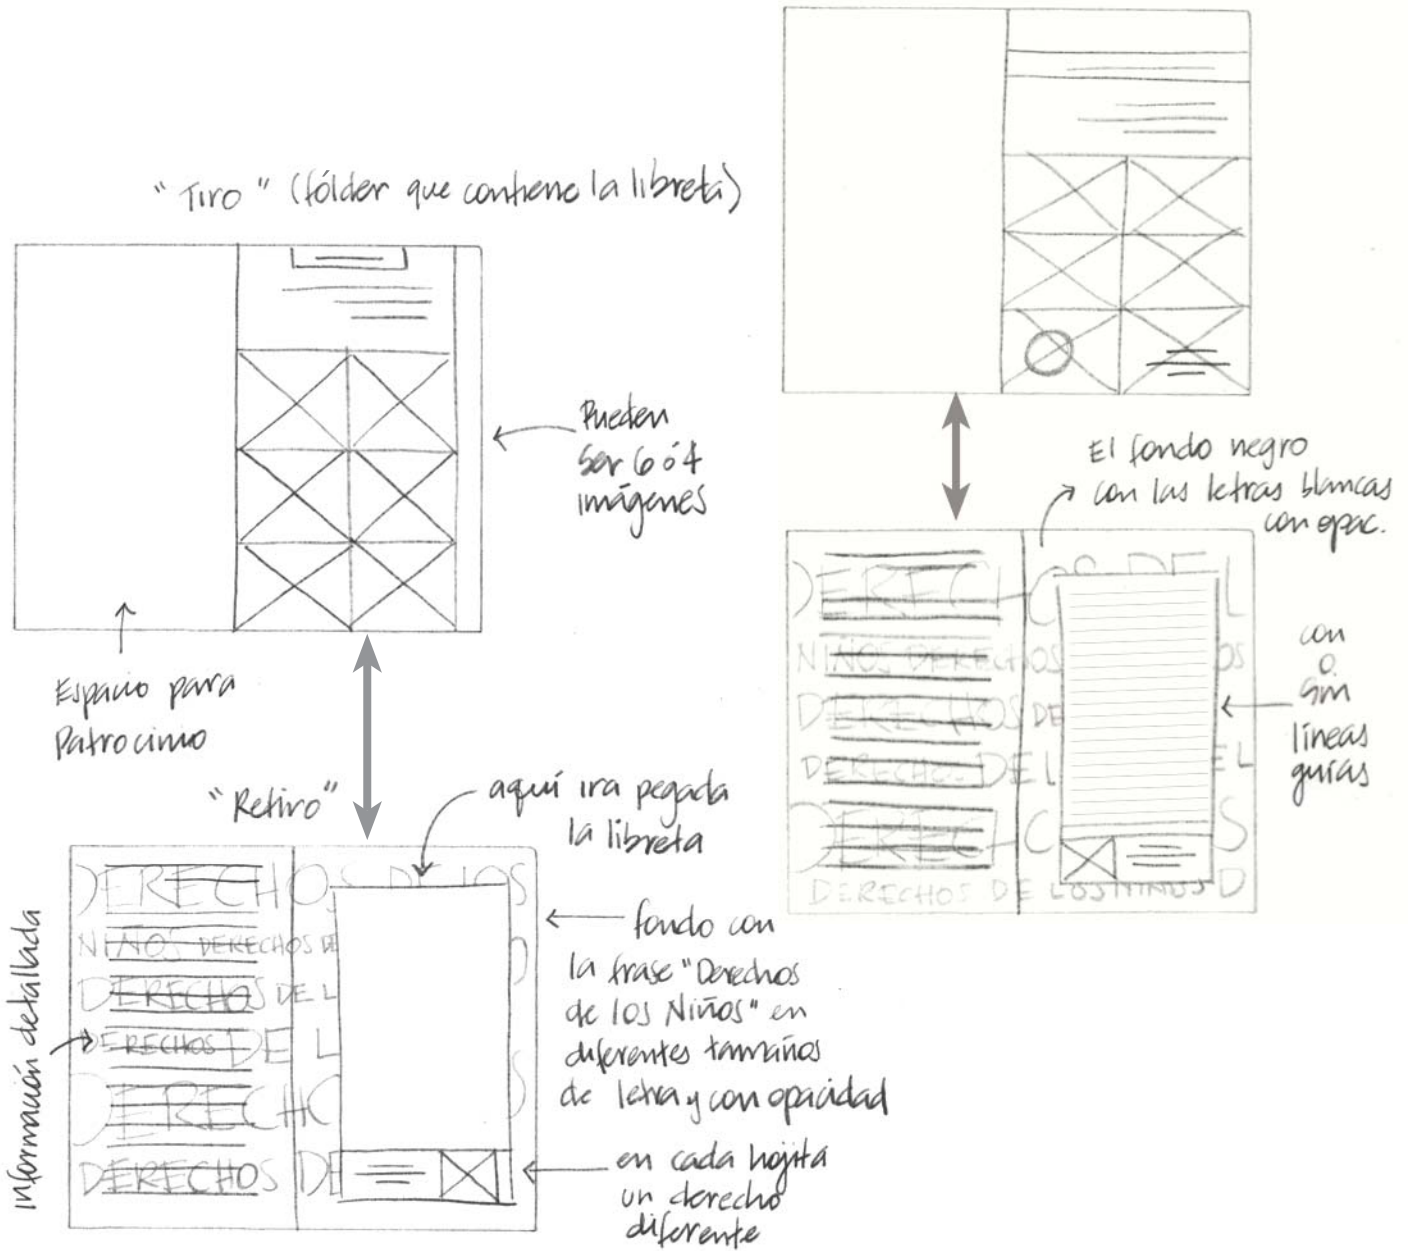 "Tiro" (fólder que contiene la libreta)
Pueden
ser 6 ó 4
imágenes
Espacio para
Patrocinio
"Retiro"
aquí ira pegada
la libreta
Información detallada
DERECHOS DE LOS
NIÑOS DERECHOS DE
DERECHOS DE L
DERECHOS DE L
DERECHO
DERECHOS DE
fondo con
la frase "Derechos
de los Niños" en
diferentes tamaños
de letra y con opacidad
en cada hojita
un derecho
diferente
El fondo negro
con las letras blancas
con opac.
DERECHOS DEL
NIÑOS DERECHOS OS
DERECHOS DE
DERECHOS DEL EL
DERECHO S
DERECHOS DE LOS NIÑOS D
con
o
sin
líneas
guías